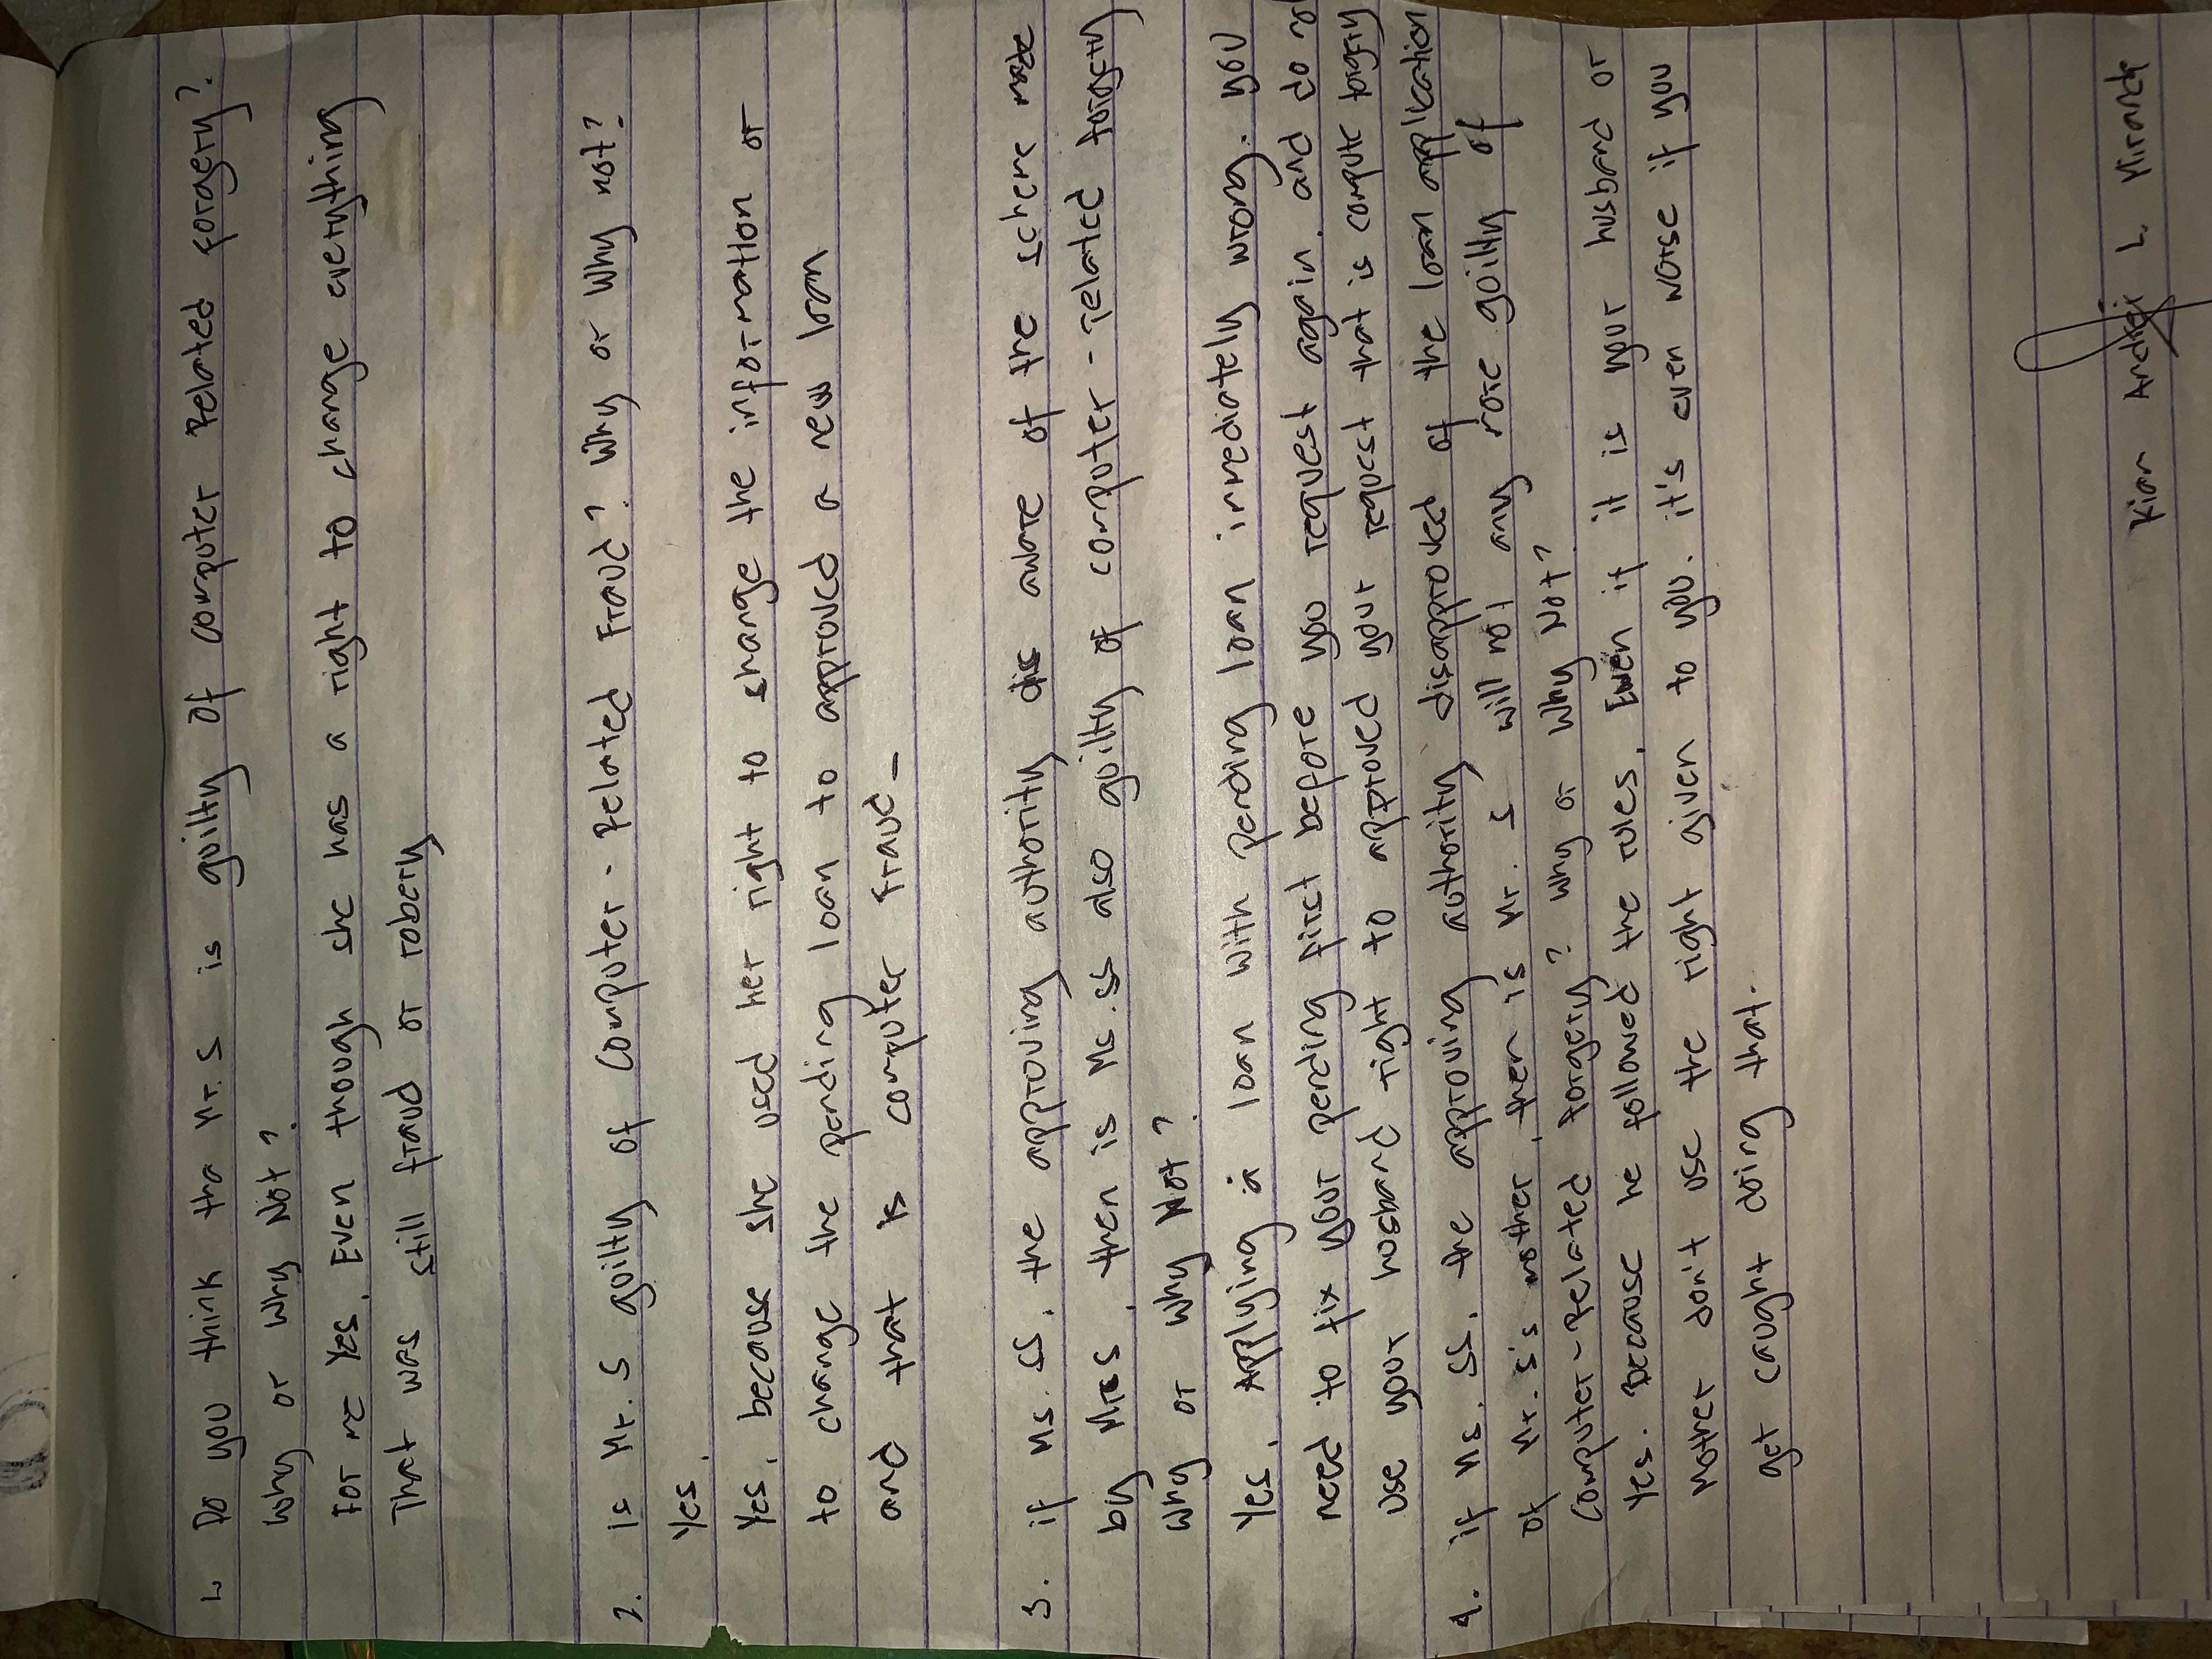 1. Do you think tha Mr. S is guilty of computer Related forgery?
Why or Why Not?
For me Yes, Even though she has a right to change everything
That was still fraud or robery
2. Is Mr. S guilty of Computer-Related Fraud? Why or Why not?
Yes,
Yes, because she used her right to change the information or
to change the pending loan to approved a new loan
and that is computer fraud_
3. if Ms. SS, the approving authority is aware of the scheme made
by Mrs S, then is Ms. SS also guilty of computer-related forgery
Why or Why Not?
Yes, Applying a loan with pending loan immediately wrong. you
need to fix your pending first before you request again. and do not
use your husband right to approved your request that is compute forgery
4. if Ms. SS, the approving authority disapproved of the loan application
of Mr. S's mother, then is Mr. S will not any guilty of
Computer-Related forgery? Why or Why Not?
Yes. Because he followed the rules. Even if it is your husband or
Mother don't use the right given to you. it's even worse if you
get caught doing that.
Kian L. Miranda